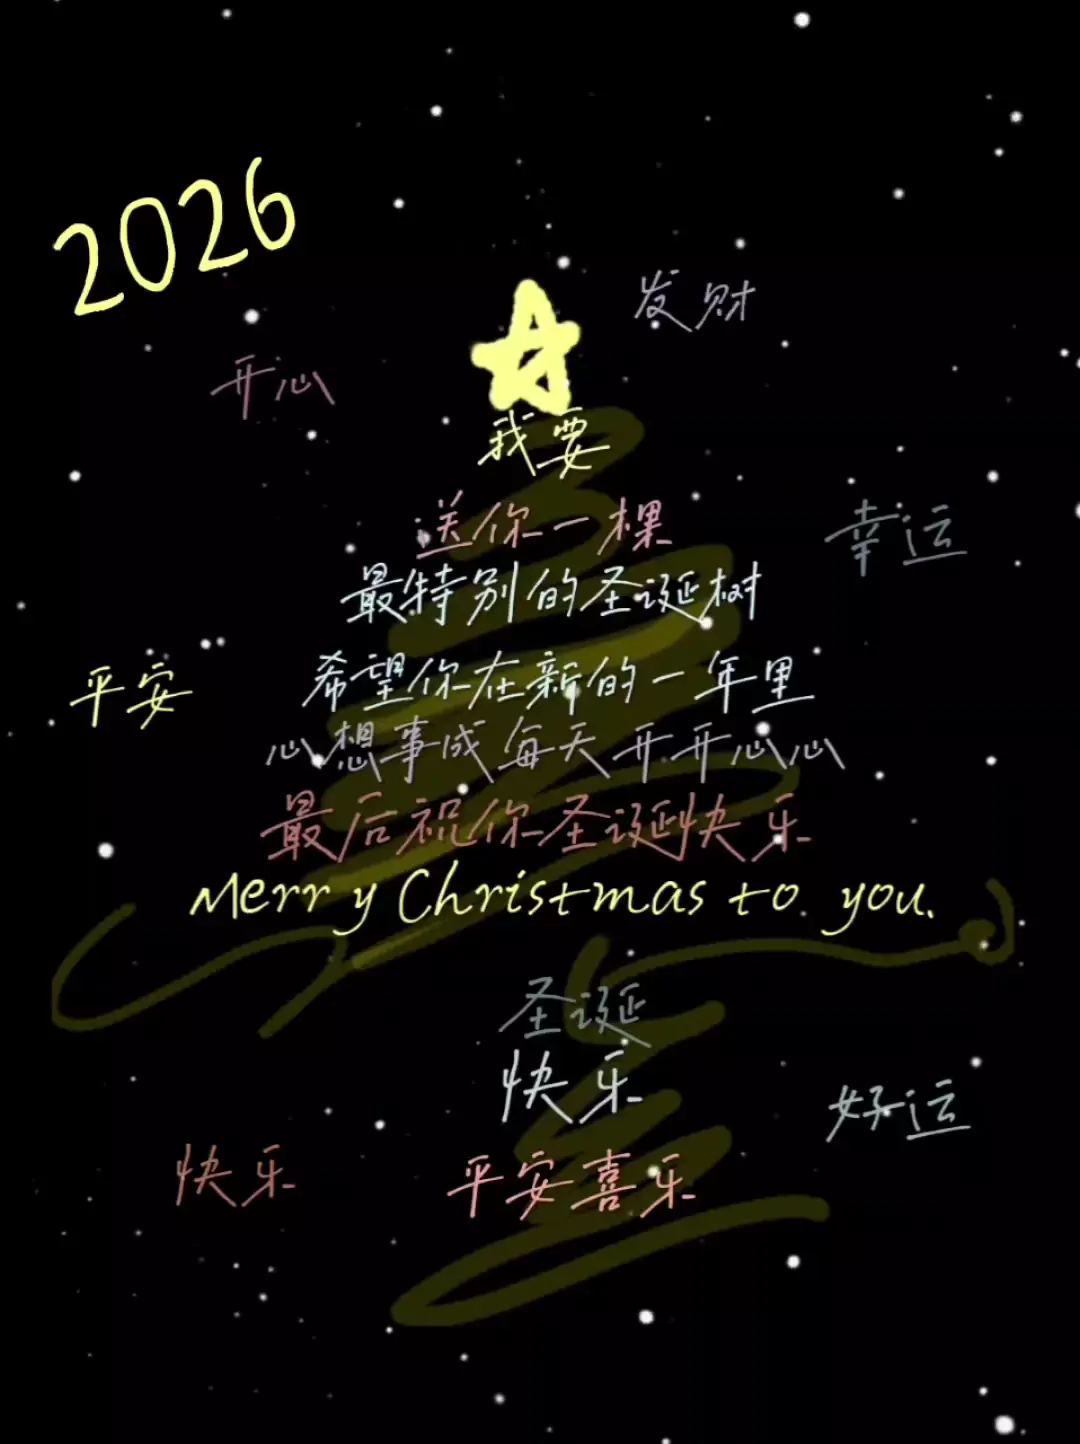 2026
发财
开心
我要
送你一棵
幸运
最特别的圣诞树
希望你在新的一年里
平安
心想事成每天开开心心
最后祝你圣诞快乐
Merry Christmas to you.
圣诞
快乐
好运
快乐
平安喜乐